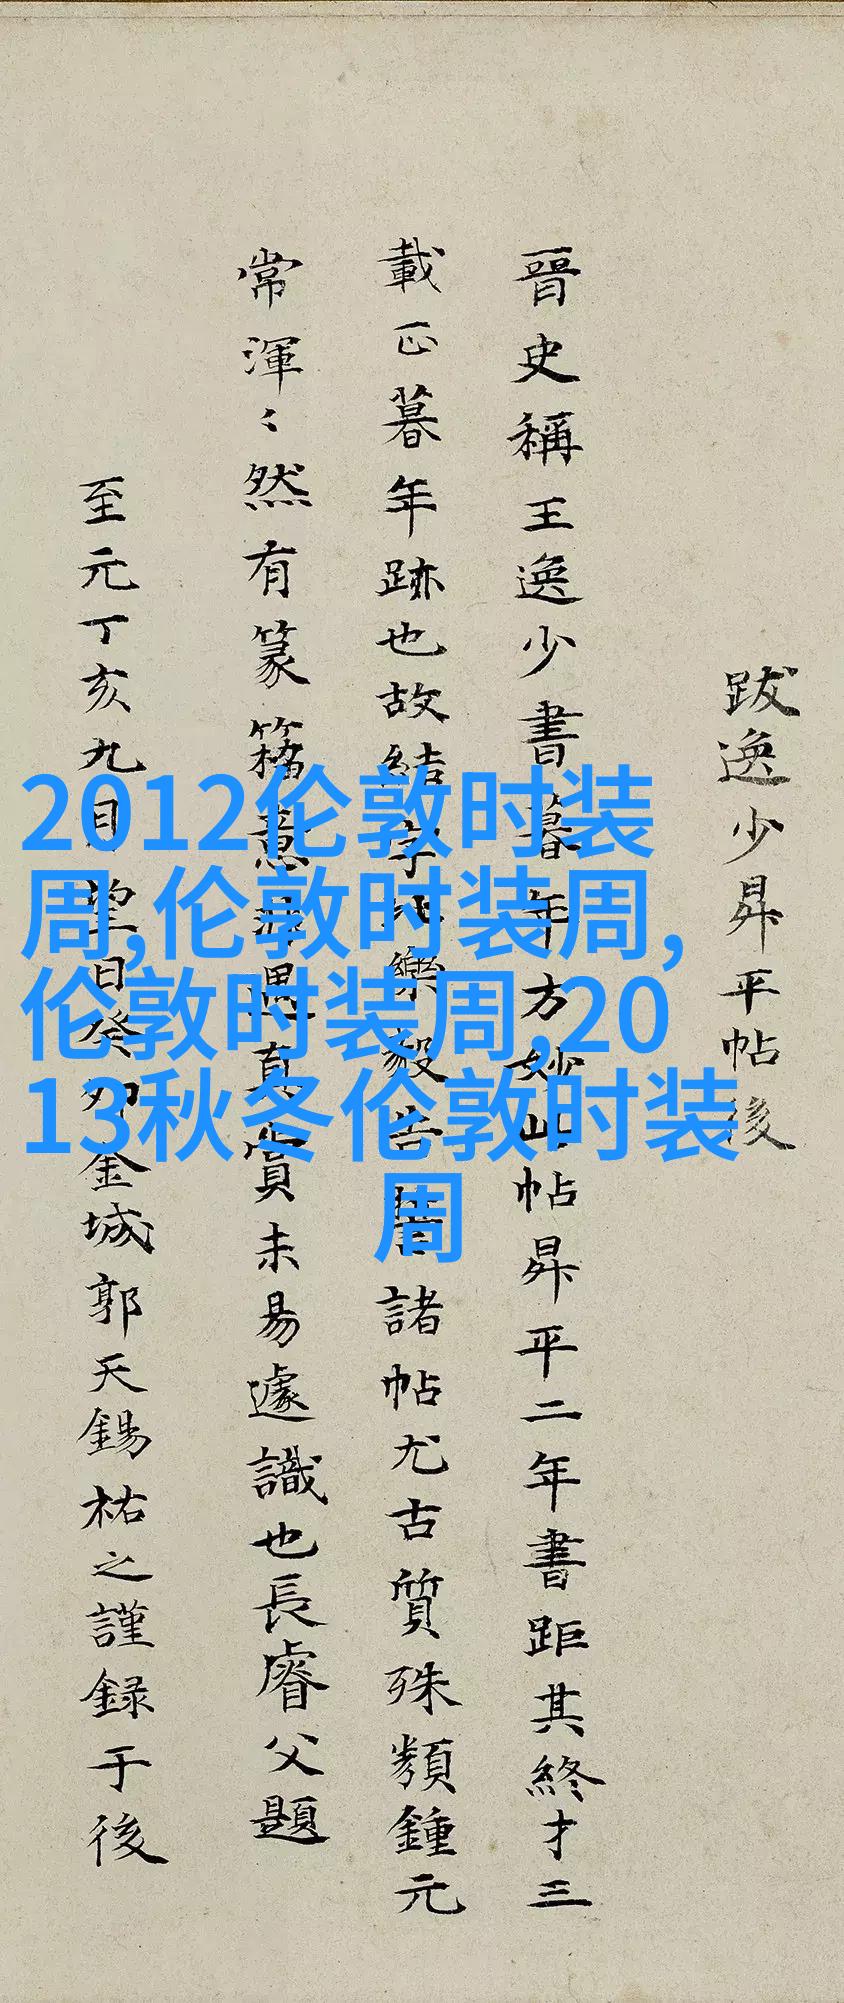 跋逸少昇平帖後
晉史稱王逸少書暮年方妙此帖昇平二年書距其終才三
載正暮年跡也故結字比樂毅告誓諸帖尤古質殊類鍾元
常渾〻然有篆籀意非遇真賞未易遽識也長睿父題
至元丁亥九月望日癸卯金城郭天錫祐之謹録于後
2012伦敦时装
周,伦敦时装周,
伦敦时装周,20
13秋冬伦敦时装
周